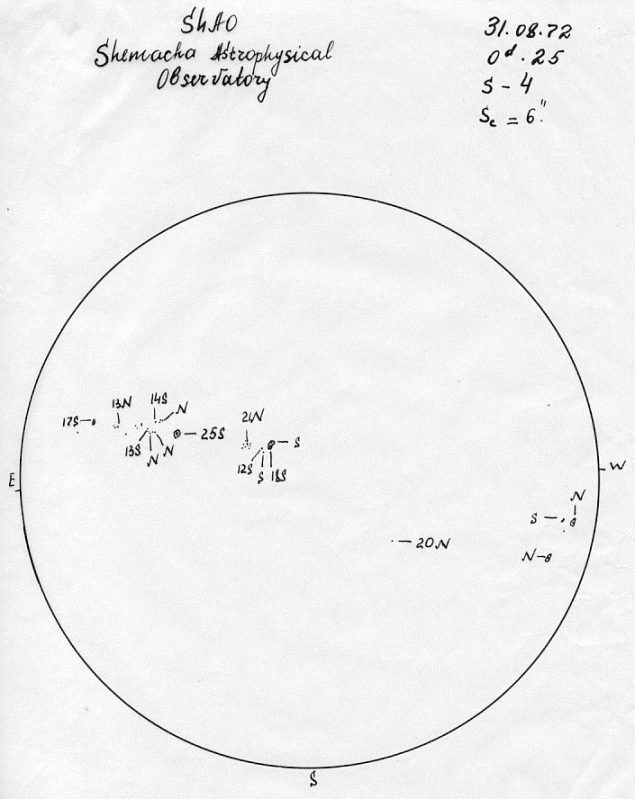 ShAO
Shemacha Astrophysical
Observatory
31.08.72
0ᵈ.25
S - 4
Sc = 6".
13N
14S
N
17S
25S
21N
S
13S
N
N
12S
S
18S
E
W
N
S
20N
N
S